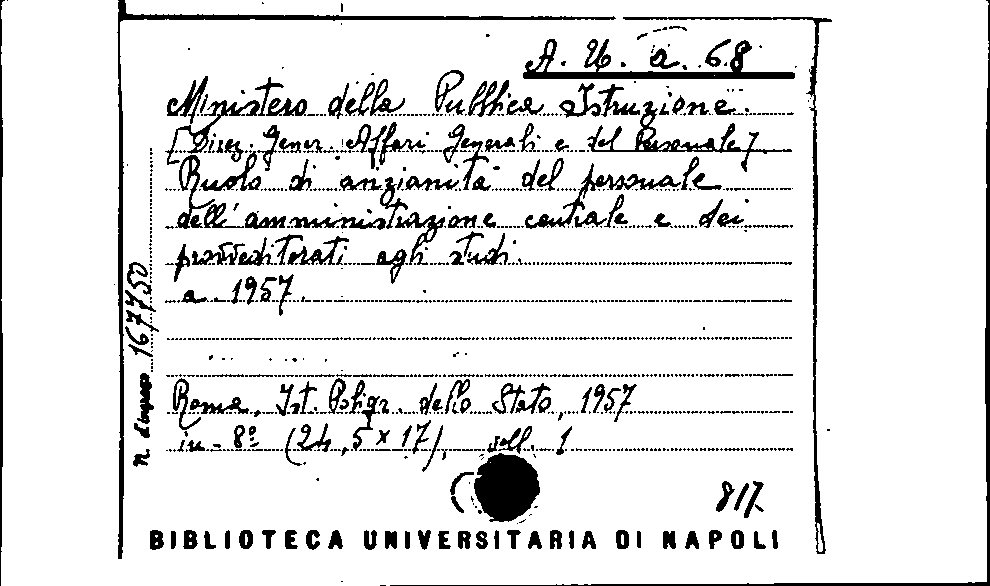 A. U. a. 68
Ministero della Pubblica Istruzione.
[Direz. Gener. Affari Generali e del Personale].
Ruolo di anzianità del personale
dell'amministrazione centrale e dei
provveditorati agli studi.
a. 1957.
Roma, Ist. Poligr. dello Stato, 1957
in-8º (24,5 x 17), voll. 1
817
n. d'ingresso 167750
BIBLIOTECA UNIVERSITARIA DI NAPOLI